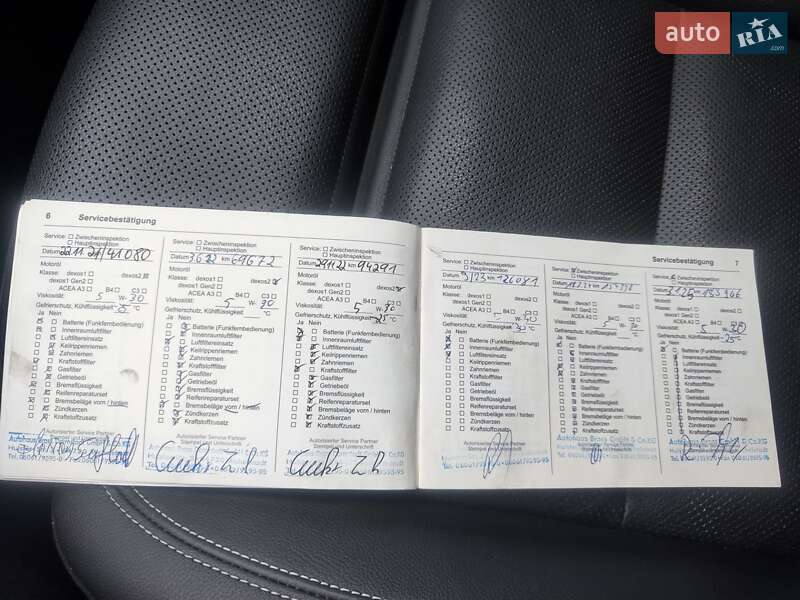 auto RIA .com
6 Servicebestätigung
Service: Zwischeninspektion
Hauptinspektion
Datum 22.11.21 / 41080
Motoröl
Klasse: dexos1 dexos2
dexos1 Gen2
ACEA A3 B4 C3
Viskosität: 5 W- 30
Gefrierschutz, Kühlflüssigkeit -25 °C
Ja Nein
Batterie (Funkfernbedienung)
Innenraumluftfilter
Luftfiltereinsatz
Keilrippenriemen
Zahnriemen
Kraftstofffilter
Gasfilter
Getriebeöl
Bremsflüssigkeit
Reifenreparaturset
Bremsbeläge vorn / hinten
Zündkerzen
Kraftstoffzusatz
Autorisierter Service Partner
Service: Zwischeninspektion
Hauptinspektion
Datum 3.6.22 km 69672
Motoröl
Klasse: dexos1 dexos2
dexos1 Gen2
ACEA A3 B4 C3
Viskosität: 5 W- 30
Gefrierschutz, Kühlflüssigkeit °C
Ja Nein
Batterie (Funkfernbedienung)
Innenraumluftfilter
Luftfiltereinsatz
Keilrippenriemen
Zahnriemen
Kraftstofffilter
Gasfilter
Getriebeöl
Bremsflüssigkeit
Reifenreparaturset
Bremsbeläge vorn / hinten
Zündkerzen
Kraftstoffzusatz
Autorisierter Service Partner
Stempel und Unterschrift
Service: Zwischeninspektion
Hauptinspektion
Datum 29.11.22 km 94291
Motoröl
Klasse: dexos1 dexos2
dexos1 Gen2
ACEA A3 B4 C3
Viskosität: 5 W- 30
Gefrierschutz, Kühlflüssigkeit -25 °C
Ja Nein
Batterie (Funkfernbedienung)
Innenraumluftfilter
Luftfiltereinsatz
Keilrippenriemen
Zahnriemen
Kraftstofffilter
Gasfilter
Getriebeöl
Bremsflüssigkeit
Reifenreparaturset
Bremsbeläge vorn / hinten
Zündkerzen
Kraftstoffzusatz
Autorisierter Service Partner
Stempel und Unterschrift
Servicebestätigung 7
Service: Zwischeninspektion
Hauptinspektion
Datum km 126081
Motoröl
Klasse: dexos1 dexos2
dexos1 Gen2
ACEA A3 B4 C3
Viskosität: W-
Gefrierschutz, Kühlflüssigkeit °C
Ja Nein
Batterie (Funkfernbedienung)
Innenraumluftfilter
Luftfiltereinsatz
Keilrippenriemen
Zahnriemen
Kraftstofffilter
Gasfilter
Getriebeöl
Bremsflüssigkeit
Reifenreparaturset
Bremsbeläge vorn / hinten
Zündkerzen
Kraftstoffzusatz
Autorisierter Service Partner
Stempel und Unterschrift
Service: Zwischeninspektion
Hauptinspektion
Datum
Motoröl
Klasse: dexos1 dexos2
dexos1 Gen2
ACEA A3 B4 C3
Viskosität: 5 W-
Gefrierschutz, Kühlflüssigkeit °C
Ja Nein
Batterie (Funkfernbedienung)
Innenraumluftfilter
Luftfiltereinsatz
Keilrippenriemen
Zahnriemen
Kraftstofffilter
Gasfilter
Getriebeöl
Bremsflüssigkeit
Reifenreparaturset
Bremsbeläge vorn / hinten
Zündkerzen
Kraftstoffzusatz
Autohaus Brass GmbH & Co.KG
Service: Zwischeninspektion
Hauptinspektion
Datum
Motoröl
Klasse: dexos1 dexos2
dexos1 Gen2
ACEA A3 B4 C3
Viskosität: 5 30
Gefrierschutz, Kühlflüssigkeit -25 °C
Ja Nein
Batterie (Funkfernbedienung)
Innenraumluftfilter
Luftfiltereinsatz
Keilrippenriemen
Zahnriemen
Kraftstofffilter
Gasfilter
Getriebeöl
Bremsflüssigkeit
Reifenreparaturset
Bremsbeläge vorn / hinten
Zündkerzen
Kraftstoffzusatz